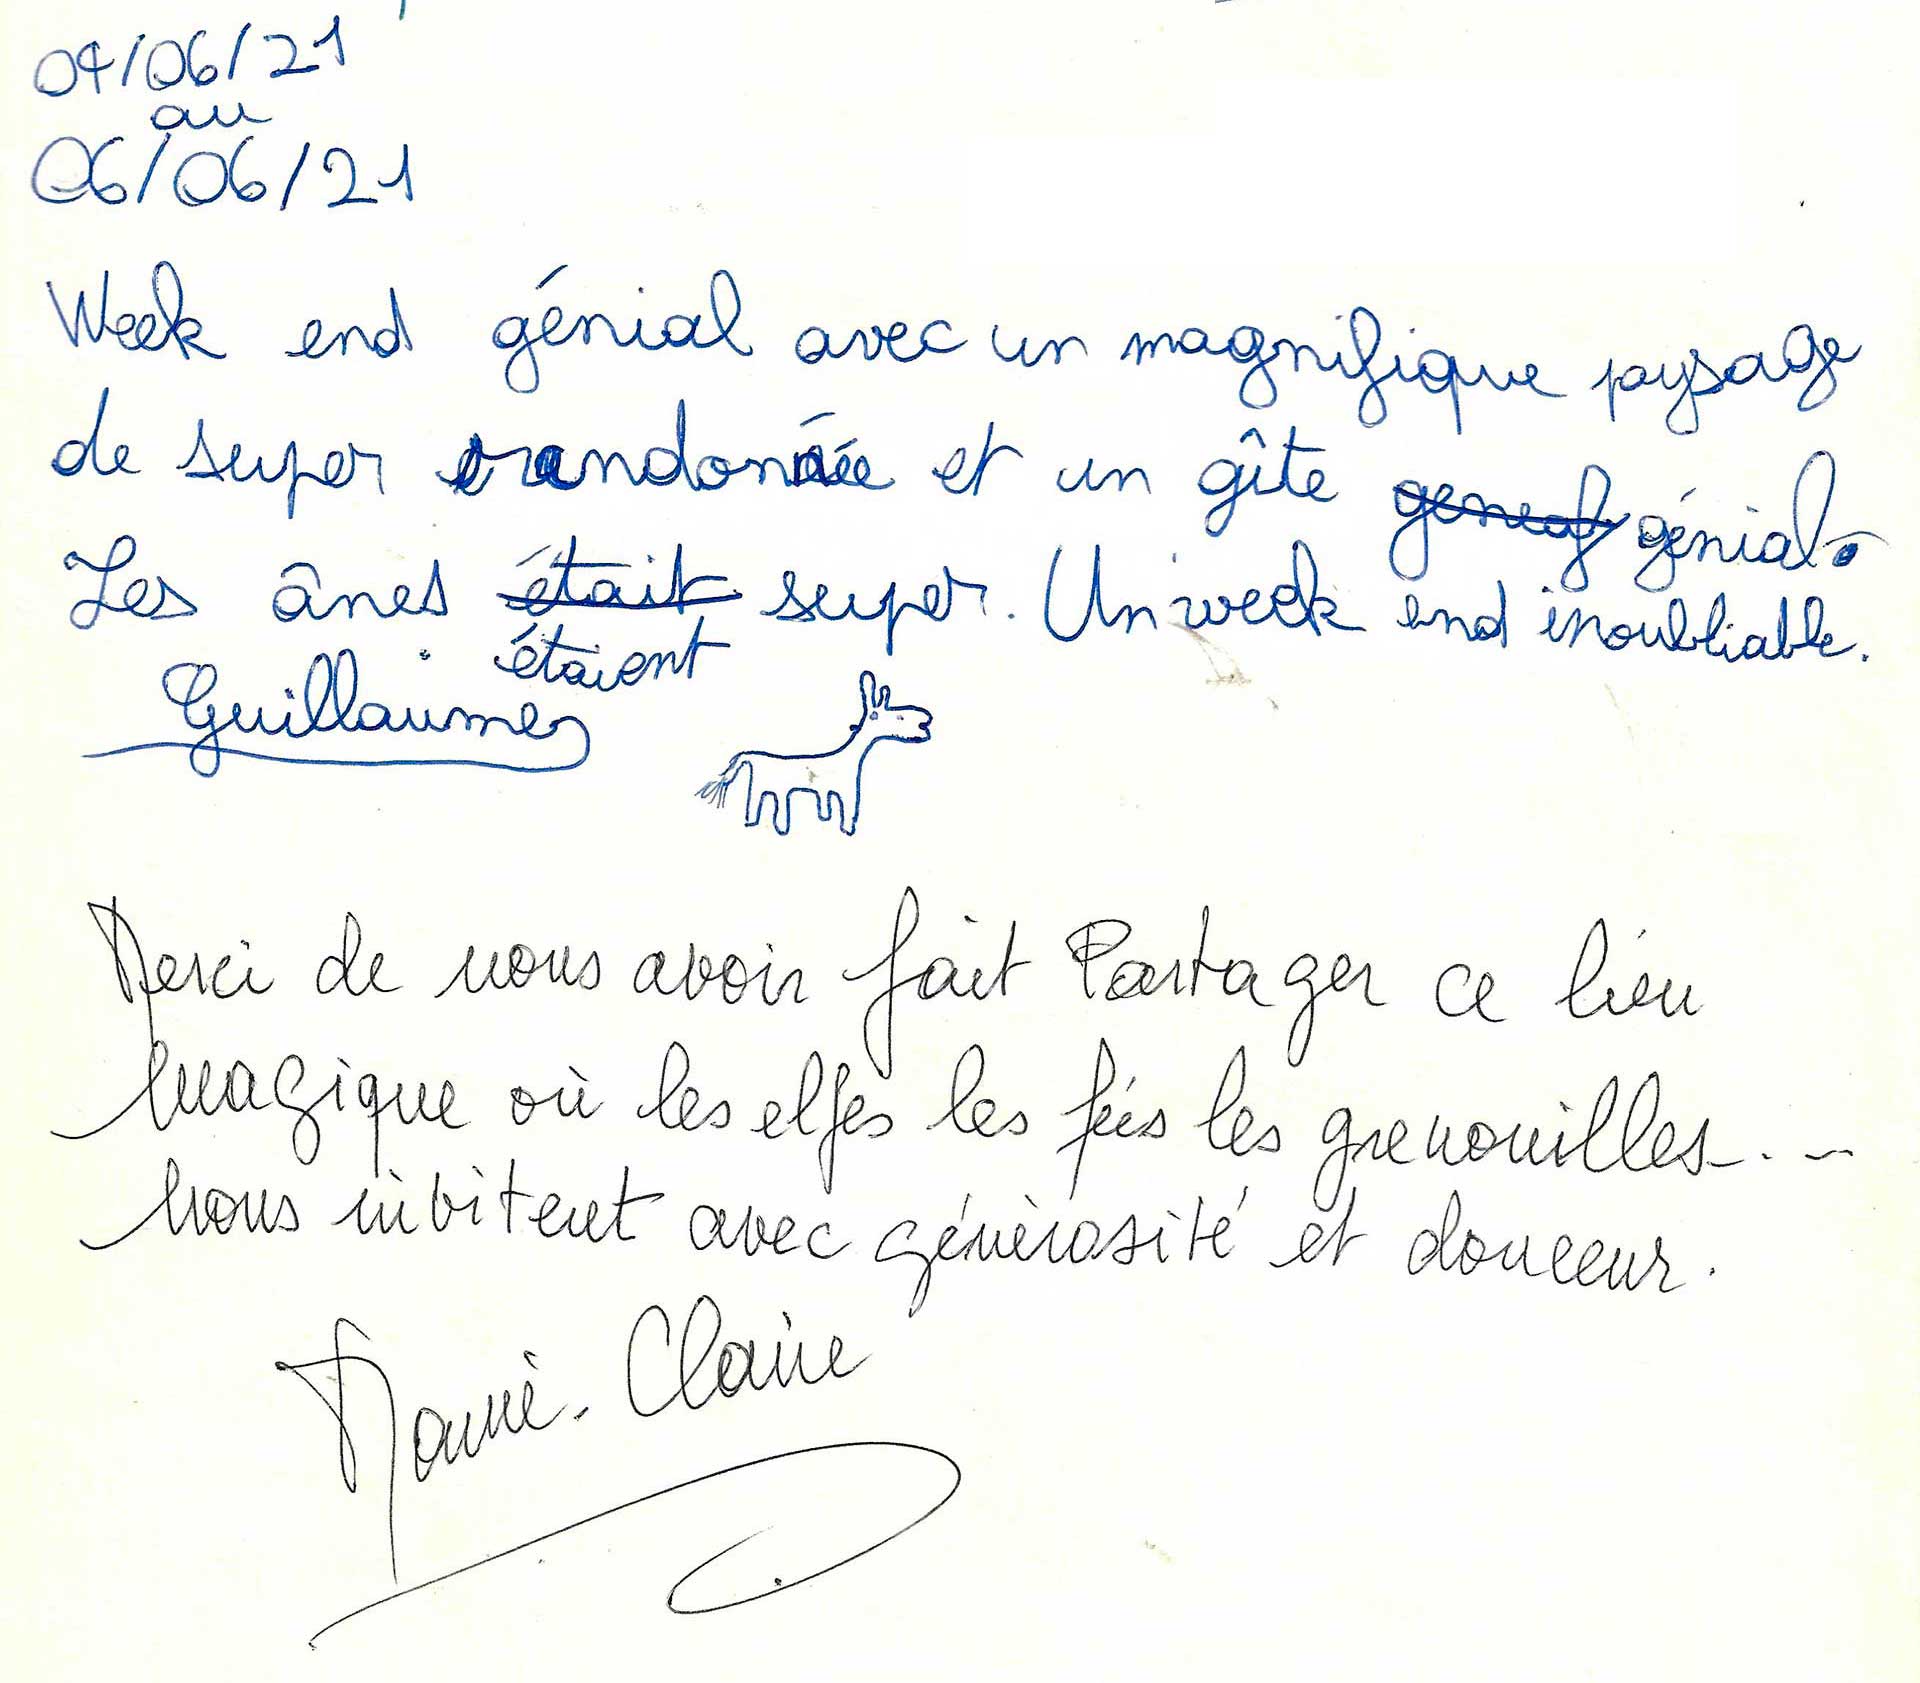 04/06/21
au
06/06/21
Week end génial avec un magnifique paysage
de super randonnée et un gîte géneal génial.
Les ânes était super. Un week end inoubliable.
étaient
Guillaume
Merci de nous avoir fait Partager ce lieu
magique où les elfes les fées les grenouilles...
nous invitent avec générosité et douceur.
Marie-Claire